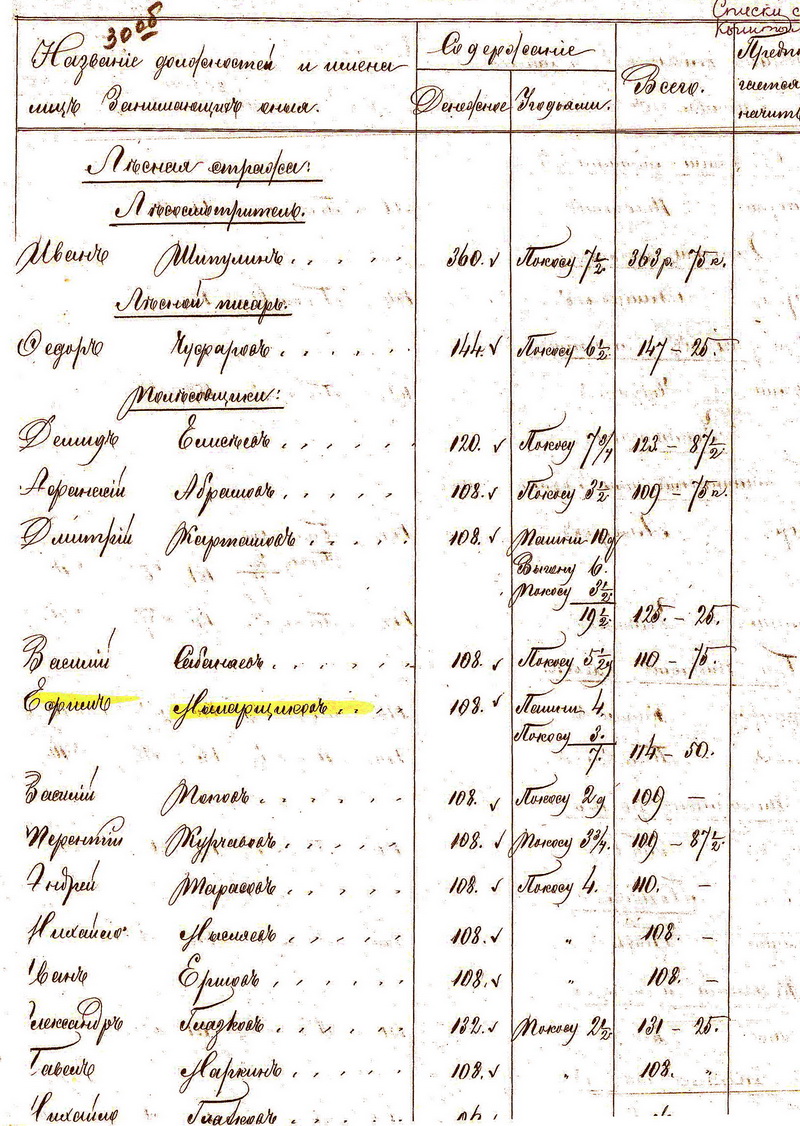 30об
Списки с
Названіе должностей и имена
лицъ Занимающихъ оныя.
Содержаніе
Денежное Угодьями.
Всего.
Предпо
гается
начить
Лѣсная стража:
Лѣсосмотритель.
Иванъ Шипулинъ 360. Покосу 7½ 363р. 75к.
Лѣсной писарь.
Федоръ Чуфаровъ 144. Покосу 6½ 147 – 25
Полѣсовщики:
Демидъ Елисѣевъ 120. Покосу 7¾ 123 – 87½
Афанасій Абрамовъ 108. Покосу 3½ 109 – 75к.
Дмитрій Карташовъ 108. Пашни 10д
Выгону 6.
Покосу 3½
19½ 125. – 25.
Василій Сабанаевъ 108. Покосу 5½д 110 – 75.
Ефимъ Мамарщиковъ 108. Пашни 4.
Покосу 3.
7. 114 – 50.
Василій Поповъ 108. Покосу 2д 109 –
Терентій Курчавовъ 108. Покосу 3¾. 109 – 87½
Андрей Тарасовъ 108. Покосу 4. 110. –
Михайло Мысляевъ 108. „ 108. –
Иванъ Ершовъ 108. „ 108. –
лександръ Глазковъ 132. Покосу 2½ 131 – 25.
Павелъ Маркинъ 108. „ 108. „
Михайло Глазковъ